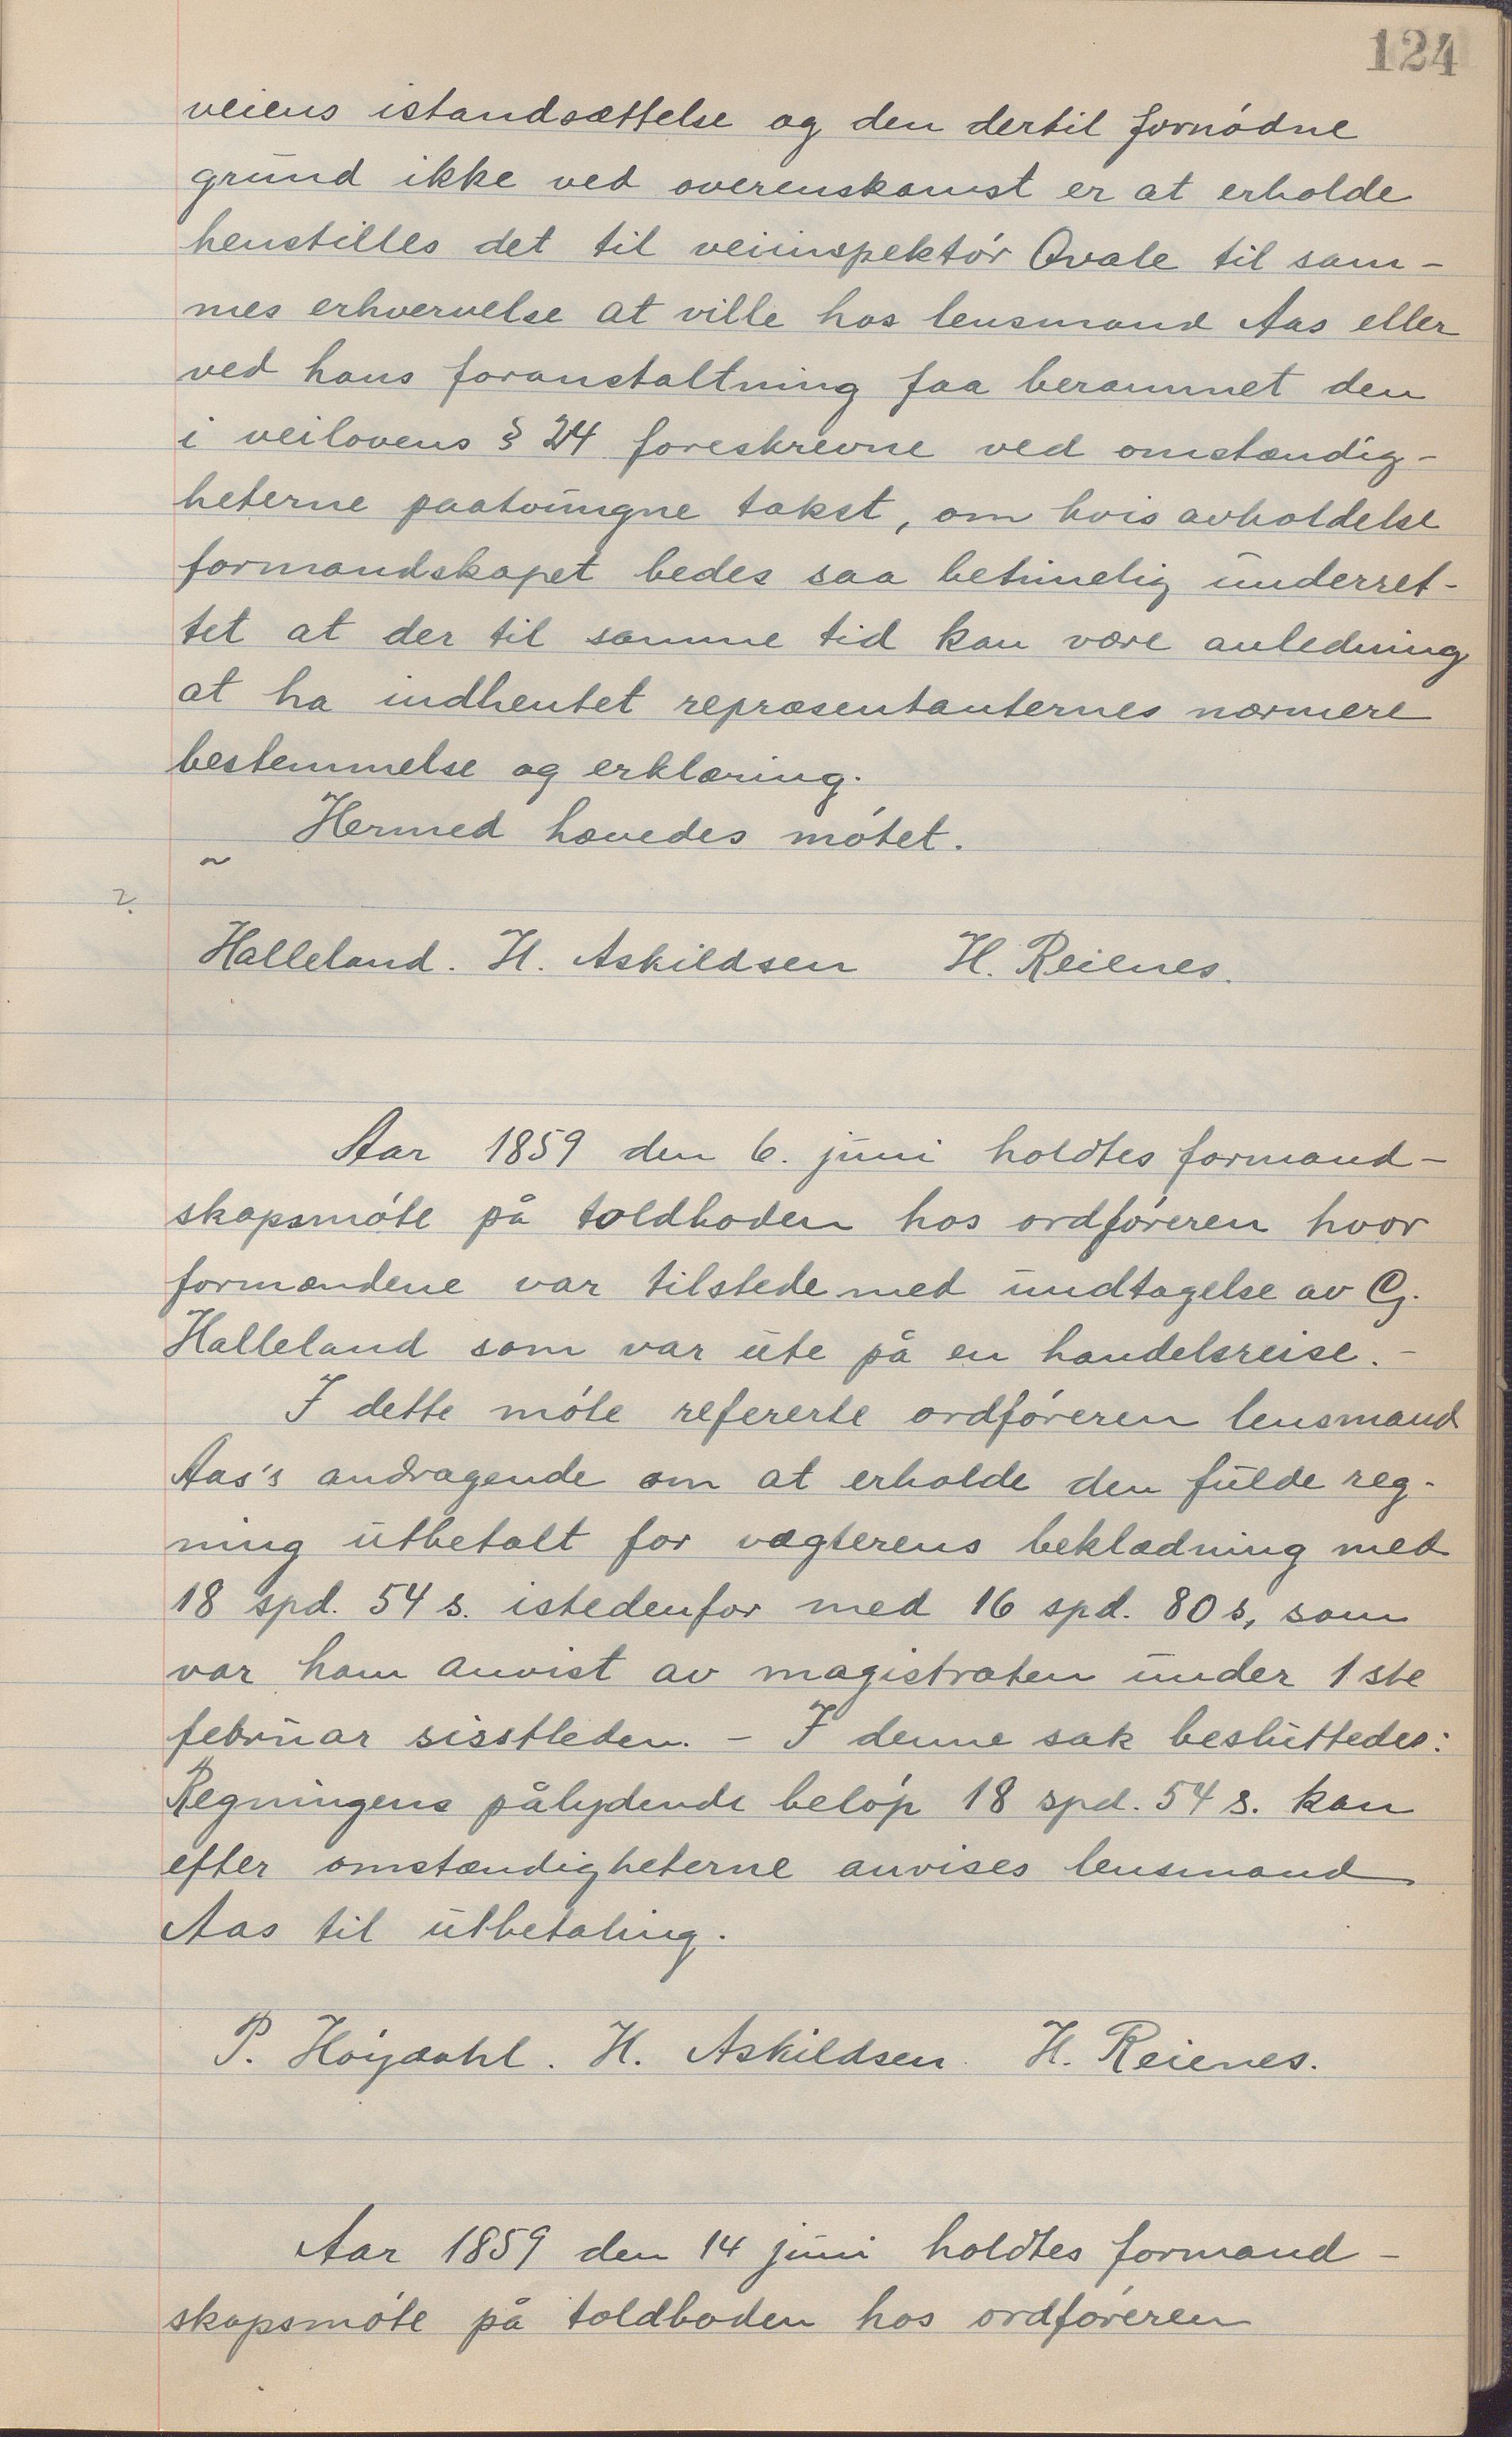 124
veiens istandsættelse og den dertil fornódne
grund ikke ved overenskomst er at erholde
henstilles det til veiinspektór Qvale til sam-
mes erhvervelse at ville hos lensmand Aas eller
ved hans foranstaltning faa berammet den
i veilovens § 24 foreskrevne ved omstændig-
heterne paatvungne takst, om hvis avholdelse
formandskapet bedes saa betimelig underret-
tet at der til samme tid kan være anledning
at ha indhentet repræsentanternes nærmere
bestemmelse og erklæring.
Hermed hævedes mótet.
~
?
Halleland. H. Askildsen H. Reienes.
Aar 1859 den 6. juni holdtes formand-
skapsmóte på toldboden hos ordfóreren hvor
formændene var tilstede med undtagelse av G.
Halleland som var ute på en handelsreise.-
I dette móte refererte ordfóreren lensmand
Aas's andragende om at erholde den fulde reg-
ning utbetalt for vægterens beklædning med
18 spd. 54 s. istedenfor med 16 spd. 80 s, som
var ham anvist av magistraten under 1ste
februar sisstleden. - I denne sak besluttedes:
Regningens pålydende belóp 18 spd. 54 s. kan
efter omstændigheterne anvises lensmand
Aas til utbetaling.
P. Hóydahl. H. Askildsen. H. Reienes.
Aar 1859 den 14 juni holdtes formand-
skapsmóte på toldboden hos ordfóreren